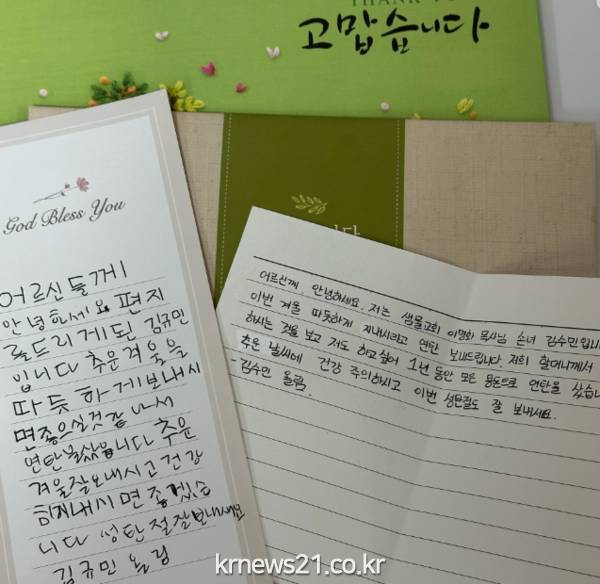 THANK YOU
고맙습니다
God Bless You
어르신들께
안녕하세요 편지
를드리게된 김규민
입니다 추운겨울을
따듯하게보내시
면좋으실것같아서
연탄을샀습니다 추운
겨울잘보내시고건강
하지내시면 좋겠습
니다 성탄절잘보내세요
김규민 올림
어르신께 안녕하세요. 저는 샘물교회 이명희 목사님 손녀 김수민입니
이번 겨울 따뜻하게 지내시라고 연탄 보내드립니다. 저희 할머니께서
하시는 것을 보고 저도 하고싶어 1년 동안 모은 용돈으로 연탄을 샀습니
추운 날씨에 건강 주의하시고 이번 성탄절도 잘 보내세요.
-김수민 올림.
krnews21.co.kr